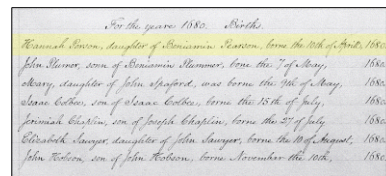 For the yeare 1680. Births.
Hannah Person, daughter of Beniamin Pearson, borne the 10th of April, 1680
John Plumer, sonn of Beniamin Plummer, bone the 7 of May, 1680
Mary, daughter of John Spaford, was borne the 9th of May, 1680
Isaac Colbee, son of Isaac Colbee, borne the 15th of July, 1680
Jerimiah Chaplin, son of Joseph Chaplin, borne the 27 of July 1680
Elizabeth Sawyer, daughter of John Sawyer, borne the 10 of August, 1680
John Hobson, son of John Hobson, borne November the 10th, 1680